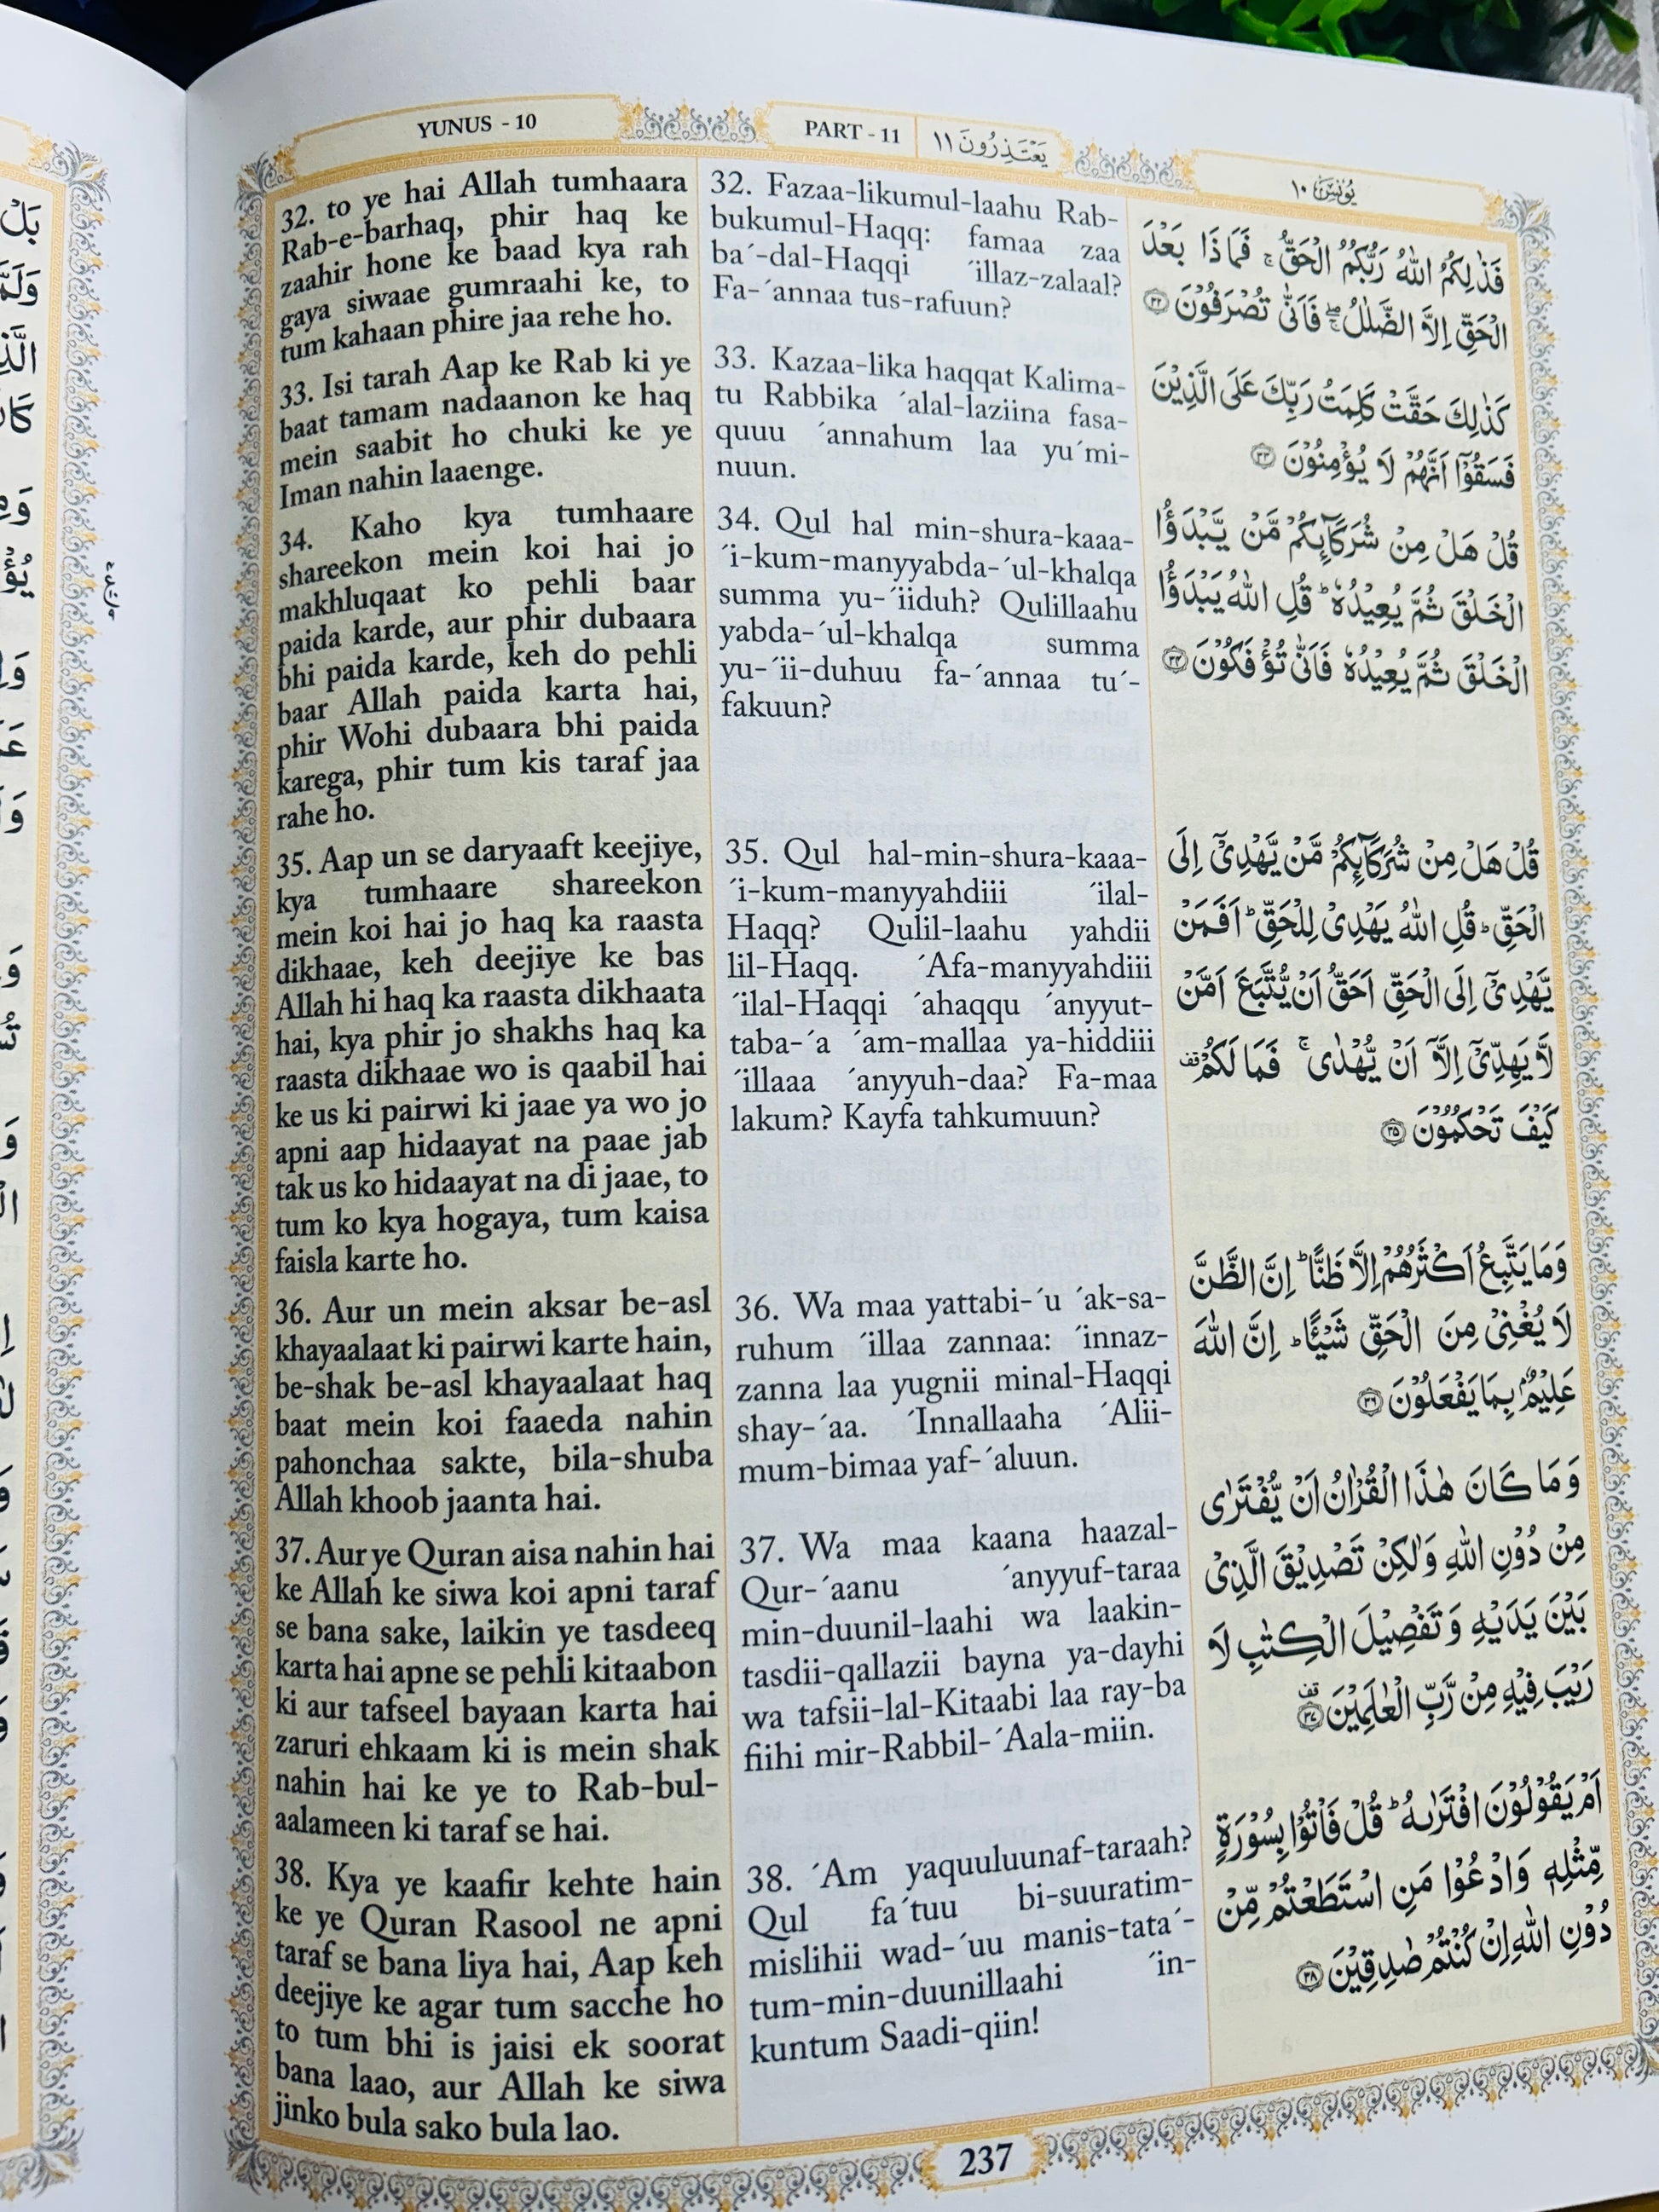 YUNUS - 10
PART - 11
يَعْتَذِرُونَ ١١
يُوْنُسَ ١٠
32. to ye hai Allah tumhaara
Rab-e-barhaq, phir haq ke
zaahir hone ke baad kya rah
gaya siwaae gumraahi ke, to
tum kahaan phire jaa rehe ho.
33. Isi tarah Aap ke Rab ki ye
baat tamam nadaanon ke haq
mein saabit ho chuki ke ye
Iman nahin laaenge.
34. Kaho kya tumhaare
shareekon mein koi hai jo
makhluqaat ko pehli baar
paida karde, aur phir dubaara
bhi paida karde, keh do pehli
baar Allah paida karta hai,
phir Wohi dubaara bhi paida
karega, phir tum kis taraf jaa
rahe ho.
35. Aap un se daryaaft keejiye,
kya tumhaare shareekon
mein koi hai jo haq ka raasta
dikhaae, keh deejiye ke bas
Allah hi haq ka raasta dikhaata
hai, kya phir jo shakhs haq ka
raasta dikhaae wo is qaabil hai
ke us ki pairwi ki jaae ya wo jo
apni aap hidaayat na paae jab
tak us ko hidaayat na di jaae, to
tum ko kya hogaya, tum kaisa
faisla karte ho.
36. Aur un mein aksar be-asl
khayaalaat ki pairwi karte hain,
be-shak be-asl khayaalaat haq
baat mein koi faaeda nahin
pahonchaa sakte, bila-shuba
Allah khoob jaanta hai.
37. Aur ye Quran aisa nahin hai
ke Allah ke siwa koi apni taraf
se bana sake, laikin ye tasdeeq
karta hai apne se pehli kitaabon
ki aur tafseel bayaan karta hai
zaruri ehkaam ki is mein shak
nahin hai ke ye to Rab-bul-
aalameen ki taraf se hai.
38. Kya ye kaafir kehte hain
ke ye Quran Rasool ne apni
taraf se bana liya hai, Aap keh
deejiye ke agar tum sacche ho
to tum bhi is jaisi ek soorat
bana laao, aur Allah ke siwa
jinko bula sako bula lao.
32. Fazaa-likumul-laahu Rab-
bukumul-Haqq: famaa zaa
ba´-dal-Haqqi ´illaz-zalaal?
Fa-´annaa tus-rafuun?
33. Kazaa-lika haqqat Kalima-
tu Rabbika ´alal-laziina fasa-
quuu ´annahum laa yu´mi-
nuun.
34. Qul hal min-shura-kaaa-
´i-kum-manyyabda-´ul-khalqa
summa yu-´iiduh? Qulillaahu
yabda-´ul-khalqa summa
yu-´ii-duhuu fa-´annaa tu´-
fakuun?
35. Qul hal-min-shura-kaaa-
´i-kum-manyyahdiii ´ilal-
Haqq? Qulil-laahu yahdii
lil-Haqq. ´Afa-manyyahdiii
´ilal-Haqqi ´ahaqqu ´anyyut-
taba-´a ´am-mallaa ya-hiddiii
´illaaa ´anyyuh-daa? Fa-maa
lakum? Kayfa tahkumuun?
36. Wa maa yattabi-´u ´ak-sa-
ruhum ´illaa zannaa: ´innaz-
zanna laa yugnii minal-Haqqi
shay-´aa. ´Innallaaha ´Alii-
mum-bimaa yaf-´aluun.
37. Wa maa kaana haazal-
Qur-´aanu ´anyyuf-taraa
min-duunil-laahi wa laakin-
tasdii-qallazii bayna ya-dayhi
wa tafsii-lal-Kitaabi laa ray-ba
fiihi mir-Rabbil-´Aala-miin.
38. ´Am yaquuluunaf-taraah?
Qul fa´tuu bi-suuratim-
mislihii wad-´uu manis-tata´-
tum-min-duunillaahi ´in-
kuntum Saadi-qiin!
فَذٰلِكُمُ اللّٰهُ رَبُّكُمُ الْحَقُّ ۚ فَمَاذَا بَعْدَ
الْحَقِّ اِلَّا الضَّلٰلُ ۖۚ فَاَنّٰى تُصْرَفُوْنَ ۝٣٢
كَذٰلِكَ حَقَّتْ كَلِمَتُ رَبِّكَ عَلَى الَّذِيْنَ
فَسَقُوْۤا اَنَّهُمْ لَا يُؤْمِنُوْنَ ۝٣٣
قُلْ هَلْ مِنْ شُرَكَآئِكُمْ مَّنْ يَّبْدَؤُا
الْخَلْقَ ثُمَّ يُعِيْدُهٗ ؕ قُلِ اللّٰهُ يَبْدَؤُا
الْخَلْقَ ثُمَّ يُعِيْدُهٗ فَاَنّٰى تُؤْفَكُوْنَ ۝٣٤
قُلْ هَلْ مِنْ شُرَكَآئِكُمْ مَّنْ يَّهْدِيْۤ اِلَى
الْحَقِّ ؕ قُلِ اللّٰهُ يَهْدِيْ لِلْحَقِّ ؕ اَفَمَنْ
يَّهْدِيْۤ اِلَى الْحَقِّ اَحَقُّ اَنْ يُّتَّبَعَ اَمَّنْ
لَّا يَهِدِّيْۤ اِلَّاۤ اَنْ يُّهْدٰى ۚ فَمَا لَكُمْ ۫
كَيْفَ تَحْكُمُوْنَ ۝٣٥
وَمَا يَتَّبِعُ اَكْثَرُهُمْ اِلَّا ظَنًّا ؕ اِنَّ الظَّنَّ
لَا يُغْنِيْ مِنَ الْحَقِّ شَيْـًٔا ؕ اِنَّ اللّٰهَ
عَلِيْمٌۢ بِمَا يَفْعَلُوْنَ ۝٣٦
وَمَا كَانَ هٰذَا الْقُرْاٰنُ اَنْ يُّفْتَرٰى
مِنْ دُوْنِ اللّٰهِ وَلٰكِنْ تَصْدِيْقَ الَّذِيْ
بَيْنَ يَدَيْهِ وَتَفْصِيْلَ الْكِتٰبِ لَا
رَيْبَ فِيْهِ مِنْ رَّبِّ الْعٰلَمِيْنَ ۝٣٧
اَمْ يَقُوْلُوْنَ افْتَرٰىهُ ؕ قُلْ فَاْتُوْا بِسُوْرَةٍ
مِّثْلِهٖ وَادْعُوْا مَنِ اسْتَطَعْتُمْ مِّنْ
دُوْنِ اللّٰهِ اِنْ كُنْتُمْ صٰدِقِيْنَ ۝٣٨
237